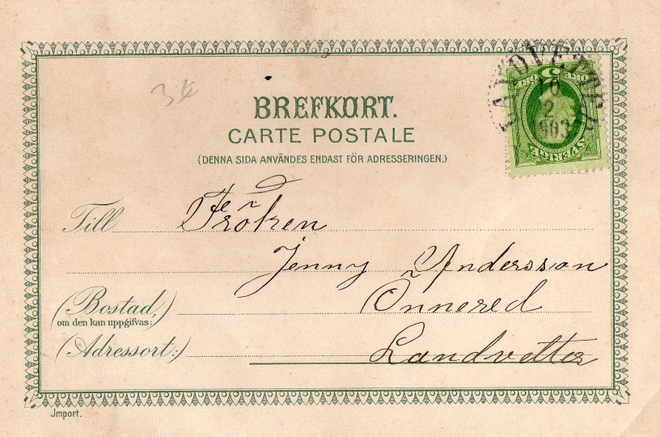 LANDVETTER
10
2
1903
5 ÖRE
SVERIGE
3
BREFKORT.
CARTE POSTALE
(DENNA SIDA ANVÄNDES ENDAST FÖR ADRESSERINGEN.)
Till Fröken
Jenny Andersson
(Bostad,) Önnered
om den kan uppgifvas:
(Adressort:) Landvetter
Import.